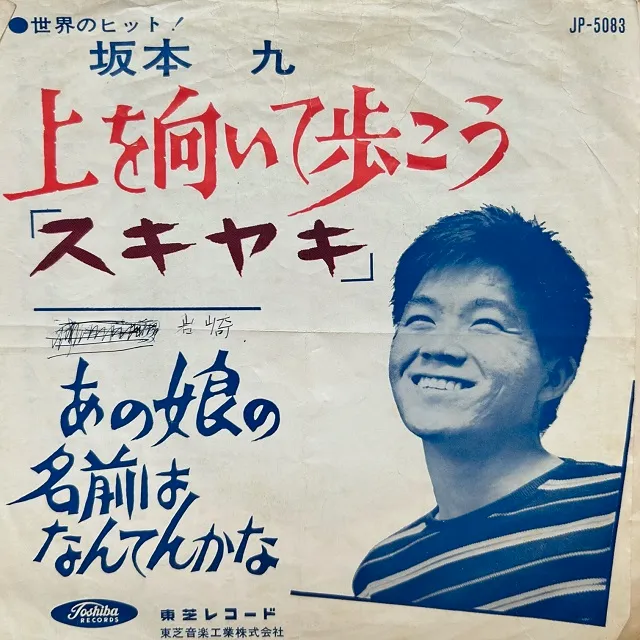 ●世界のヒット!
JP-5083
坂本 九
上を向いて歩こう
「スキヤキ」
岩崎
あの娘の
名前は
なんてんかな
Toshiba
RECORDS
東芝レコード
東芝音楽工業株式会社